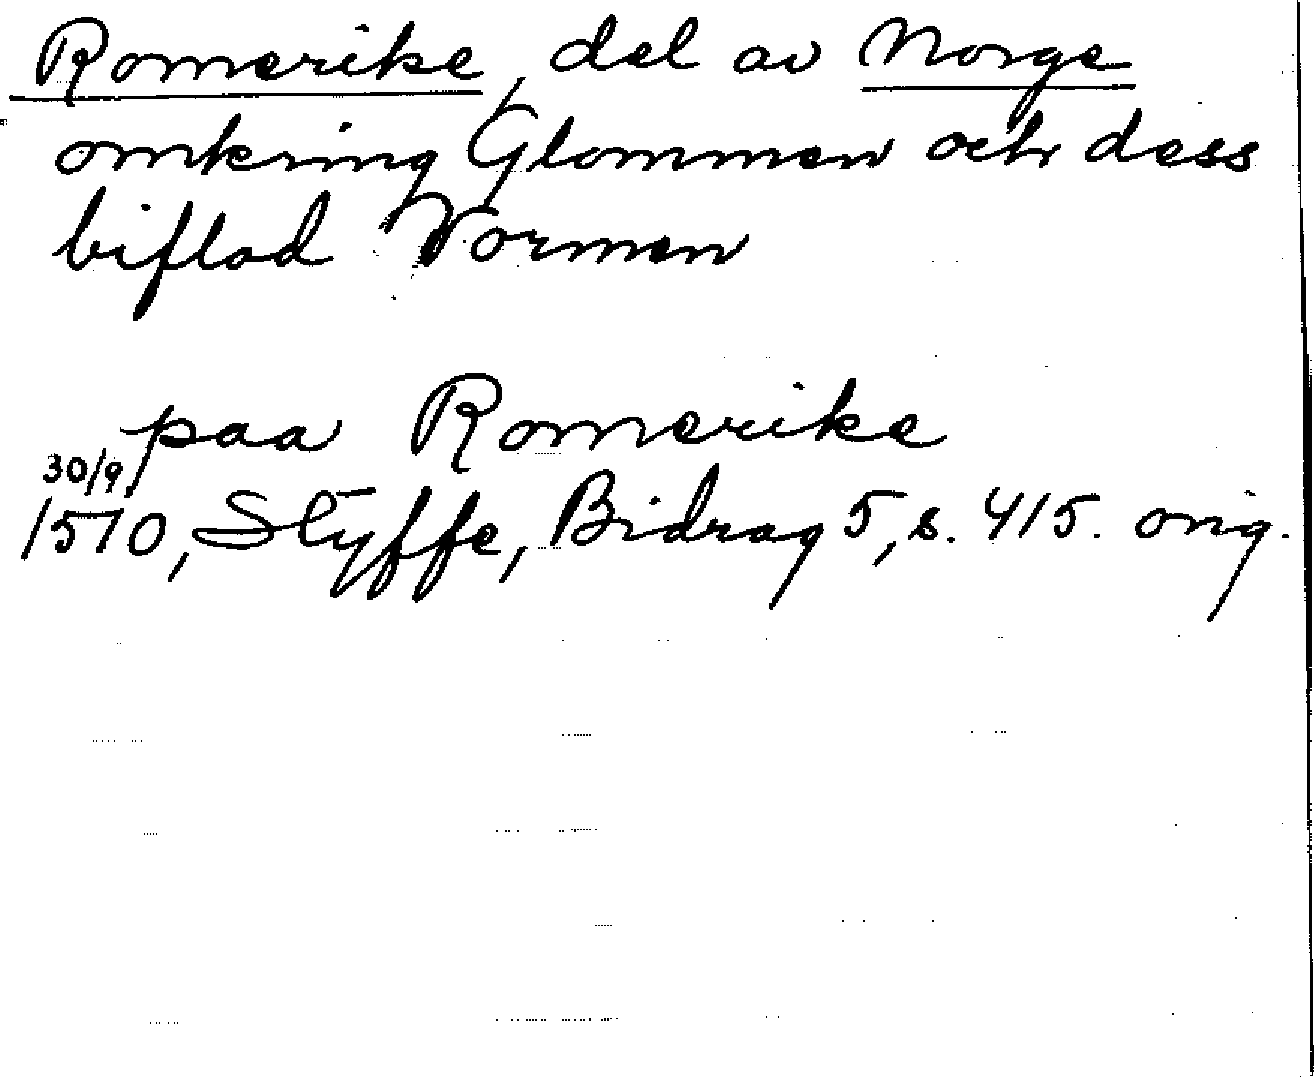 Romerike, del av Norge
omkring Glommen och dess
biflod Vormen
paa Romerike
30/9
1510, Styffe, Bidrag 5, s. 415. orig.